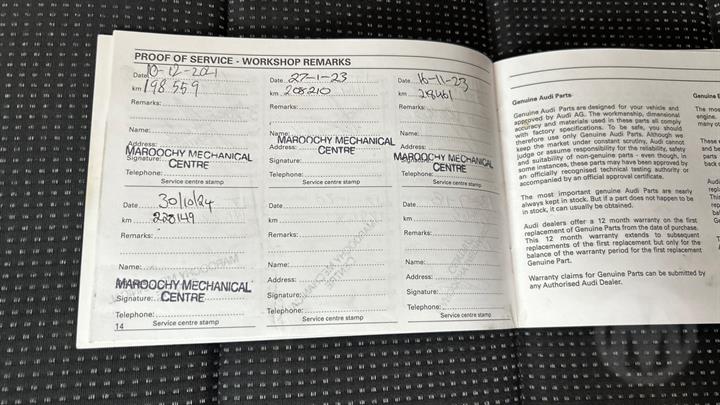 PROOF OF SERVICE - WORKSHOP REMARKS
Date 10-12-2021
km 198 559
Remarks:
Name:
Address:
MAROOCHY MECHANICAL
Signature:
CENTRE
Telephone:
Service centre stamp
Date 27-1-23
km 208210
Remarks:
Name:
MAROOCHY MECHANICAL
Address:
CENTRE
Signature:
Telephone:
Service centre stamp
Date 16-11-23
km
Remarks:
Name:
Address:
MAROOCHY MECHANICAL
Signature:
CENTRE
Telephone:
Service centre stamp
Date 30/10/24
km 220149
Remarks:
Name:
Address:
MAROOCHY MECHANICAL
Signature:
CENTRE
Telephone:
Service centre stamp
14
Date
km
Remarks:
Name:
Address:
Signature:
Telephone:
Service centre stamp
Date
km
Remarks:
Name:
Address:
Signature:
Telephone:
Service centre stamp
Genuine Audi Parts
Genuine Audi Parts are designed for your vehicle and
approved by Audi AG. The workmanship, dimensional
accuracy and materials used in these parts all comply
with factory specifications. To be safe, you should
therefore use only Genuine Audi Parts. Although we
keep the market under constant scrutiny, Audi cannot
judge or assume responsibility for the reliability, safety
and suitability of non-genuine parts - even though, in
some instances, these parts may have been approved by
an officially recognised technical testing authority or
accompanied by an official approval certificate.
The most important genuine Audi Parts are nearly
always kept in stock. But if a part does not happen to be
in stock, it can usually be obtained.
Audi dealers offer a 12 month warranty on the first
replacement of Genuine Parts from the date of purchase.
This 12 month warranty extends to subsequent
replacements of the first replacement but only for the
balance of the warranty period for the first replacement
Genuine Part.
Warranty claims for Genuine Parts can be submitted by
any Authorised Audi Dealer.
Genuine
The
engine.
many
These
and
parts
back